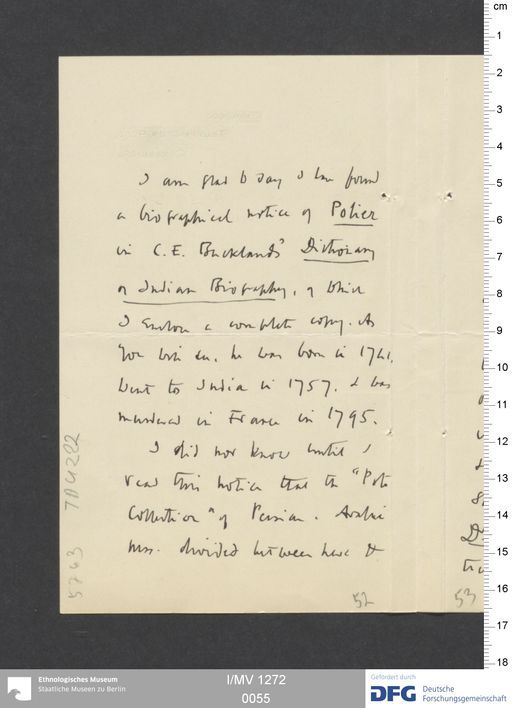 I am glad to say I have found
a biographical notice of Polier
in C.E. Buckland's Dictionary
of Indian Biography, of which
I enclose a complete copy. As
you will see, he was born in 1741,
went to India in 1757, & was
murdered in France in 1795.
I did not know until I
read this notice that the "Pote
Collection" of Persian & Arabic
mss. divided between here &
52
53
cm
1
2
3
4
5
6
7
8
9
10
11
12
13
14
15
16
17
18
Ethnologisches Museum
Staatliche Museen zu Berlin
I/MV 1272
0055
Gefördert durch
DFG Deutsche
Forschungsgemeinschaft